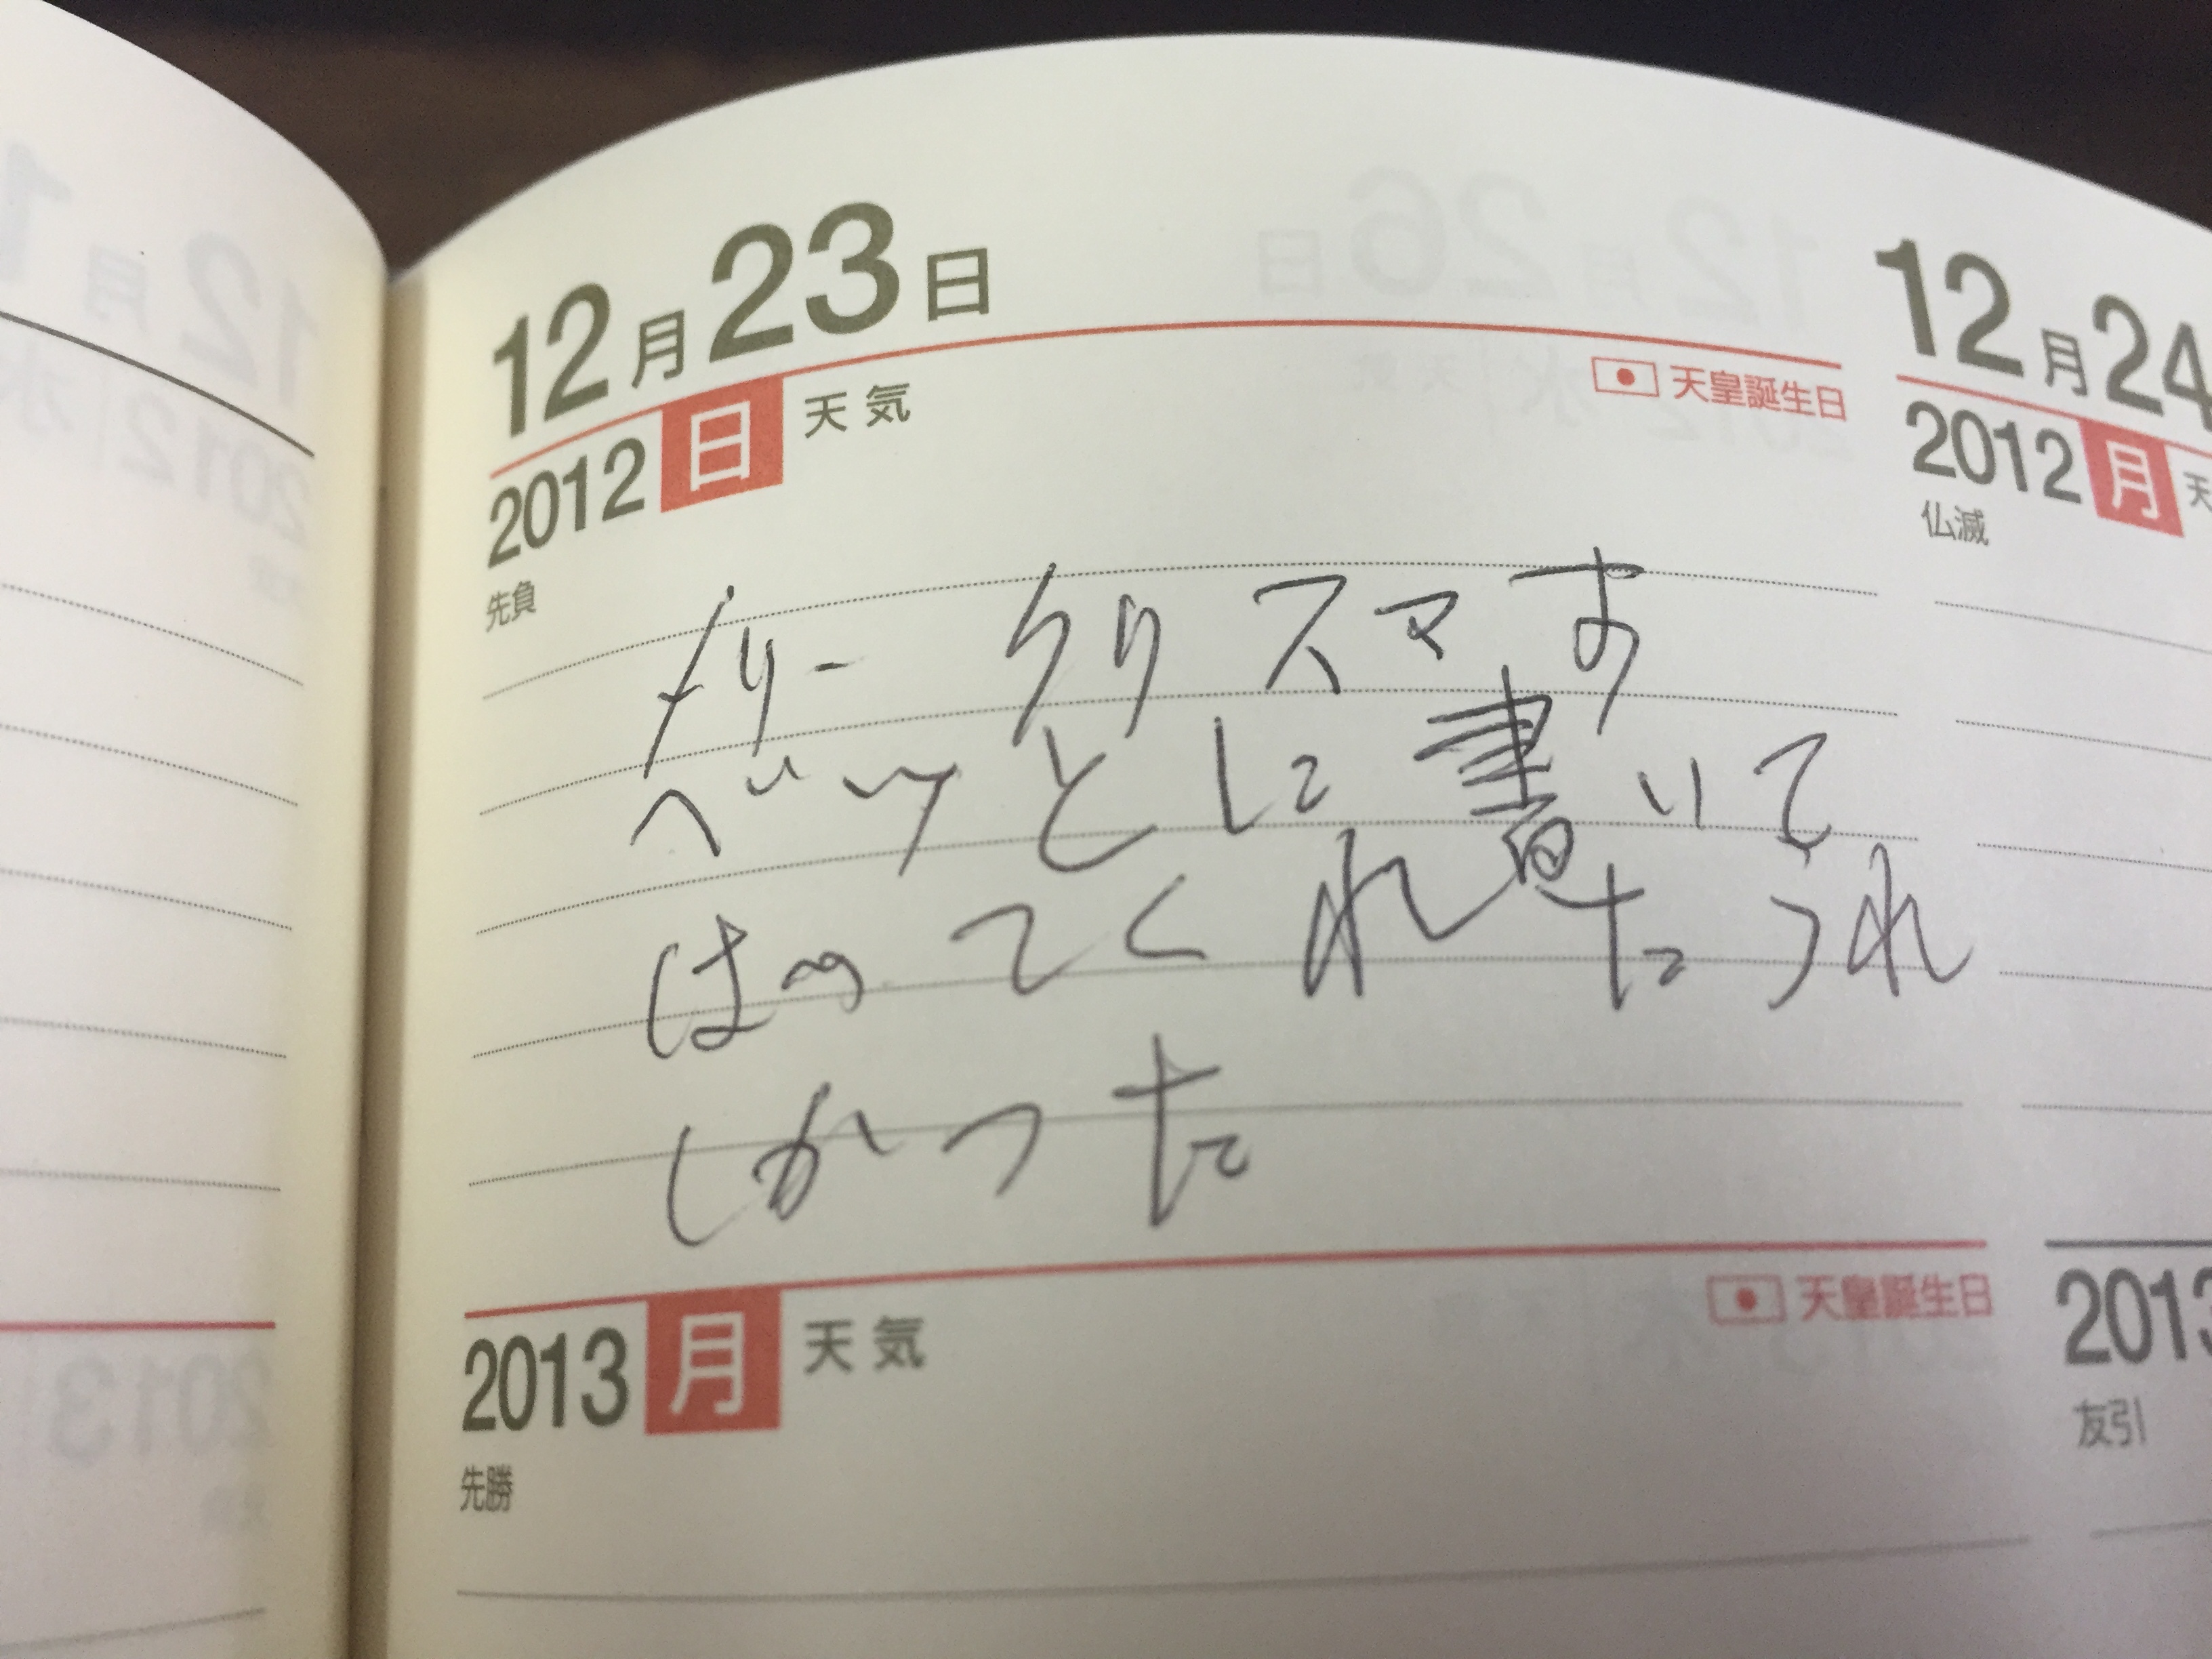 12月23日
2012 日 天気 天皇誕生日
先負
メリークリスマす
ベッとに書いて
はってくれたうれ
しかった
2013 月 天気 天皇誕生日
先勝
12月24
2012 月 天
仏滅
2013
友引